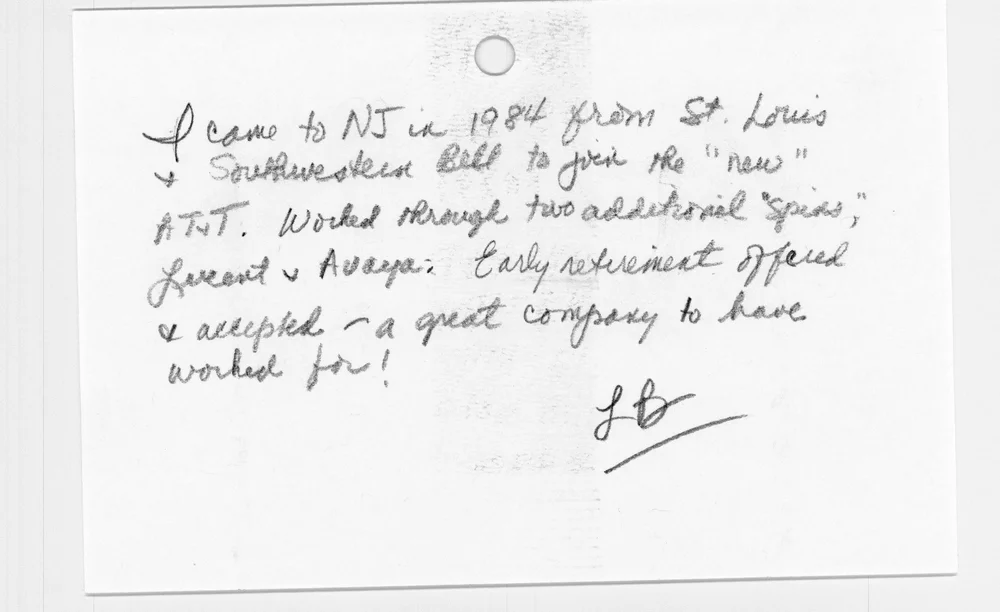 I came to NJ in 1984 from St. Louis
& Southwestern Bell to join the "new"
AT&T. Worked through two additional "spins",
Lucent & Avaya. Early retirement offered
& accepted – a great company to have
worked for!
LB